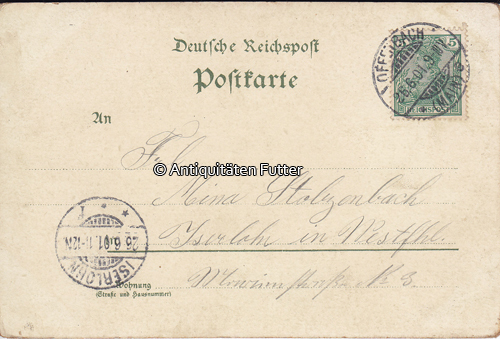 Deutsche Reichspost
Postkarte
OFFENBACH
26.6.01.9
(MAIN)
5
An
Frl.
© Antiquitäten Futter
Mina Stolzenbach
Iserlohn in Westfhl.
ISERLOHN
26.6.01.11-12N
Wohnung
(Straße und Hausnummer)
No 3.